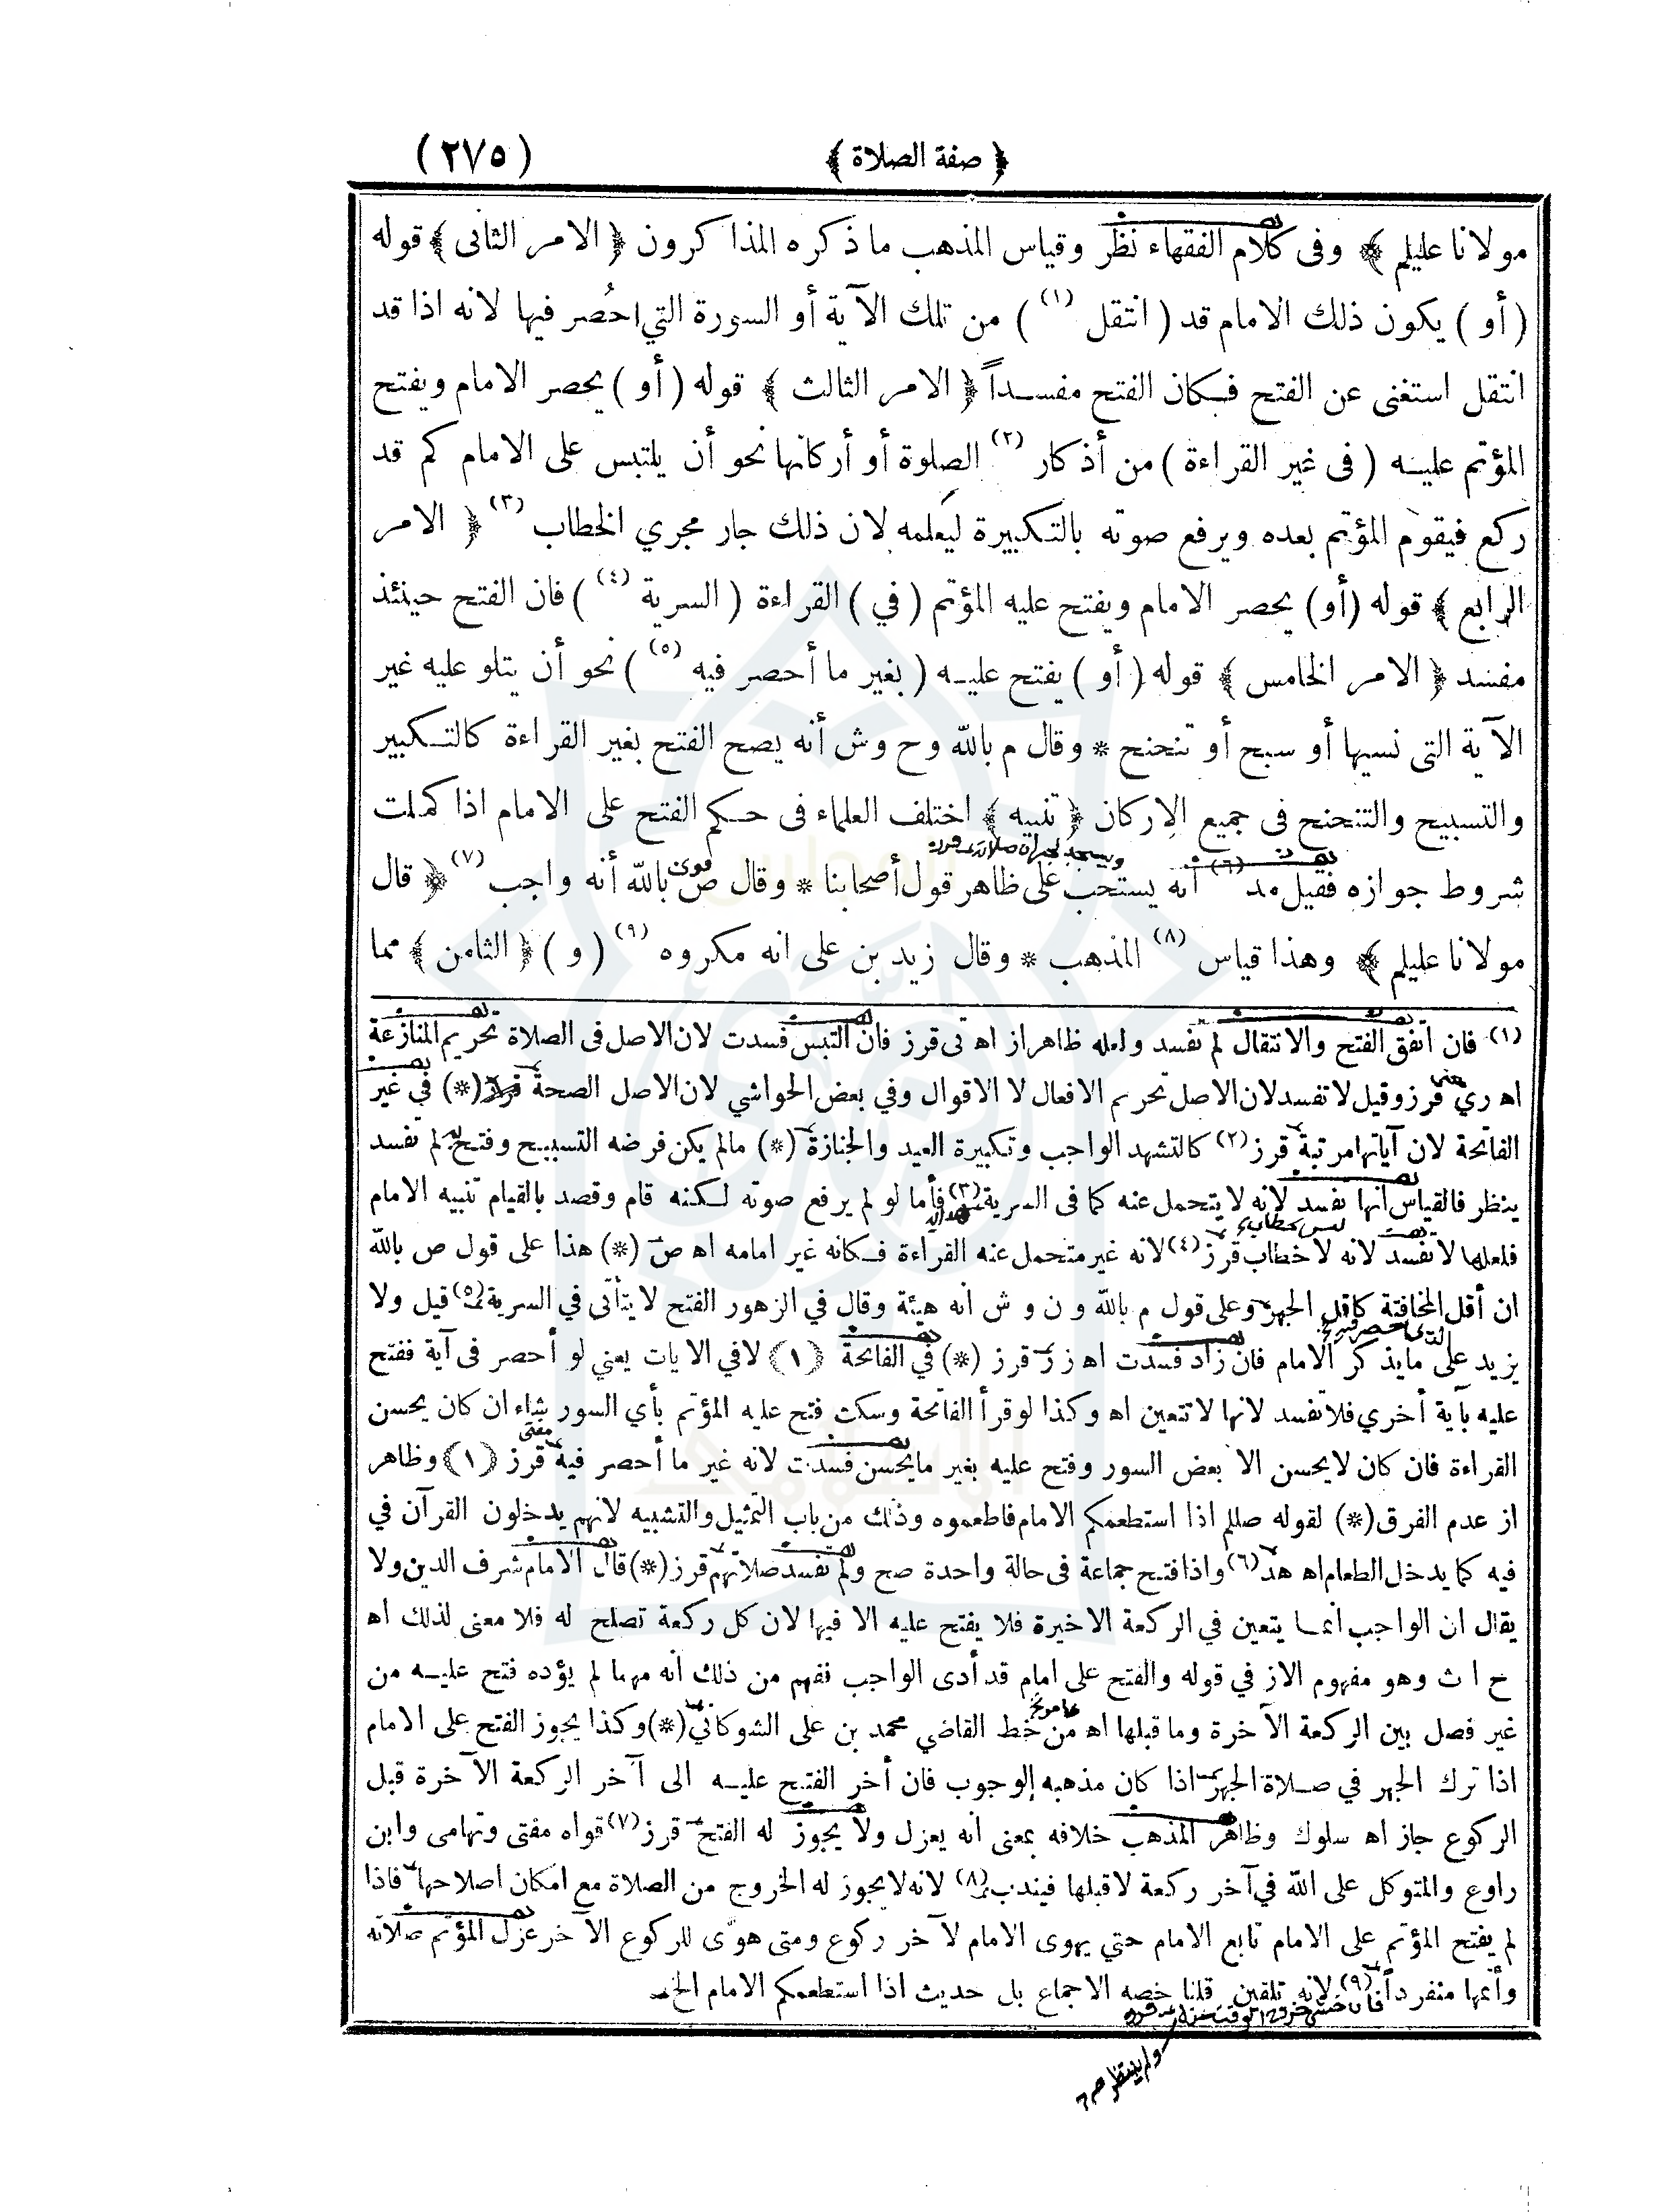 ﴿ صفة الصلاة ﴾ (٢٧٥)
مولانا عليلم ﴾ وفى كلام الفقهاء نظر وقياس المذهب ما ذكره المذاكرون ﴿ الامر الثانى ﴾ قوله
( أو ) يكون ذلك الامام قد ( انتقل (١) ) من تلك الآية أو السورة التي احُصر فيها لانه اذا قد
انتقل استغنى عن الفتح فكان الفتح مفسداً ﴿ الامر الثالث ﴾ قوله ( أو ) يحصر الامام ويفتح
المؤتم عليه ( فى غير القراءة ) من أذكار (٢) الصلوة أو أركانها نحو أن يلتبس على الامام كم قد
ركع فيقوم المؤتم بعده ويرفع صوته بالتكبيرة ليَعلمه لان ذلك جار مجري الخطاب (٣) ﴿ الامر
الرابع ﴾ قوله (أو) يحصر الامام ويفتح عليه المؤتم ( في ) القراءة ( السرية (٤) ) فان الفتح حينئذ
مفسد ﴿ الامر الخامس ﴾ قوله ( أو ) يفتح عليه ( بغير ما أحصر فيه (٥) ) نحو أن يتلو عليه غير
الآية التى نسيها أو سبح أو تنحنح * وقال م بالله وح وش أنه يصح الفتح بغير القراءة كالتكبير
والتسبيح والتنحنح فى جميع الاركان ﴿ تنبيه ﴾ اختلف العلماء فى حكم الفتح على الامام اذا كملت
شروط جوازه فقيل مد (٦) انه يستحب على ظاهر قول أصحابنا * وقال ص بالله أنه واجب (٧) ﴿ قال
مولانا عليلم ﴾ وهذا قياس (٨) المذهب * وقال زيد بن على انه مكروه (٩) ( و ) ﴿ الثامن ﴾ مما
(١) فان اتفق الفتح والانتقال لم تفسد ولعله ظاهر از اه تى قرز فان التبس فسدت لان الاصل فى الصلاة تحريم المنازعة
اه ري قرز وقيل لا تفسد لان الاصل تحريم الافعال لا الاقوال وفي بعض الحواشي لان الاصل الصحة قرز (*) في غير
الفاتحة لان آياتها مرتبة قرز (٢) كالتشهد الواجب وتكبيرة العيد والجنازة (*) مالم يكن فرضه التسبيح وفتح به لم تفسد
ينظر فالقياس أنها تفسد لانه لا يتحمل عنه كما فى السرية (٣) فأما لو لم يرفع صوته لكنه قام وقصد بالقيام تنبيه الامام
فلعلها لا تفسد لانه لا خطاب قرز (٤) لانه غير متحمل عنه القراءة فكانه غير امامه اه ص (*) هذا على قول ص بالله
ان أقل المخافتة كاقل الجهر وعلى قول م بالله و ن و ش انه هيئة وقال في الزهور الفتح لا يتأتى في السرية (٥) قيل ولا
يزيد على ما يذكر الامام فان زاد فسدت اه زر قرز (*) في الفاتحة ﴿ ١ ﴾ لافي الايات يعني لو أحصر فى آية ففتح
عليه بآية أخري فلا تفسد لانها لا تتعين اه وكذا لو قرأ الفاتحة وسكت فتح عليه المؤتم بأي السور شاء ان كان يحسن
القراءة فان كان لايحسن الا بعض السور وفتح عليه بغير ما يحسن فسدت لانه غير ما أحصر فيه قرز ﴿ ١ ﴾ وظاهر
از عدم الفرق (*) لقوله صللم اذا استطعمكم الامام فاطعموه وذلك من باب التمثيل والتشبيه لانهم يدخلون القرآن في
فيه كما يدخل الطعام اه هد (٦) واذا فتح جماعة فى حالة واحدة صح ولم تفسد صلاتهم قرز (*) قال الامام شرف الدين ولا
يقال ان الواجب انما يتعين في الركعة الاخيرة فلا يفتح عليه الا فيها لان كل ركعة تصلح له فلا معنى لذلك اه
ح ا ث وهو مفهوم الاز في قوله والفتح على امام قد أدى الواجب نفهم من ذلك انه مهما لم يؤده فتح عليه من
غير فصل بين الركعة الآخرة وما قبلها اه من خط القاضي محمد بن على الشوكاني (*) وكذا يجوز الفتح على الامام
اذا ترك الجهر في صلاة الجهر اذا كان مذهبه الوجوب فان أخر الفتح عليه الى آخر الركعة الآخرة قبل
الركوع جاز اه سلوك وظاهر المذهب خلافه بمعنى أنه يعزل ولا يجوز له الفتح قرز (٧) قواه مفتى وتهامى وابن
راوع والمتوكل على الله في آخر ركعة لا قبلها فيندب (٨) لانه لايجوز له الخروج من الصلاة مع امكان اصلاحها فاذا
لم يفتح المؤتم على الامام تابع الامام حتي يهوى الامام لآخر ركوع ومتى هوى للركوع الآخر عزل المؤتم صلاته
وأتمها منفرداً (٩) لانه تلقين قلنا خصه الاجماع بل حديث اذا استطعمكم الامام الخ